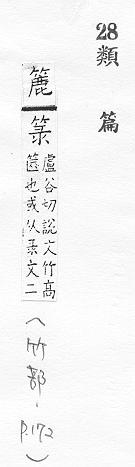 28類
篇
簏
箓
盧谷切說文竹高
篋也或从录文二
(竹部·
p.172)